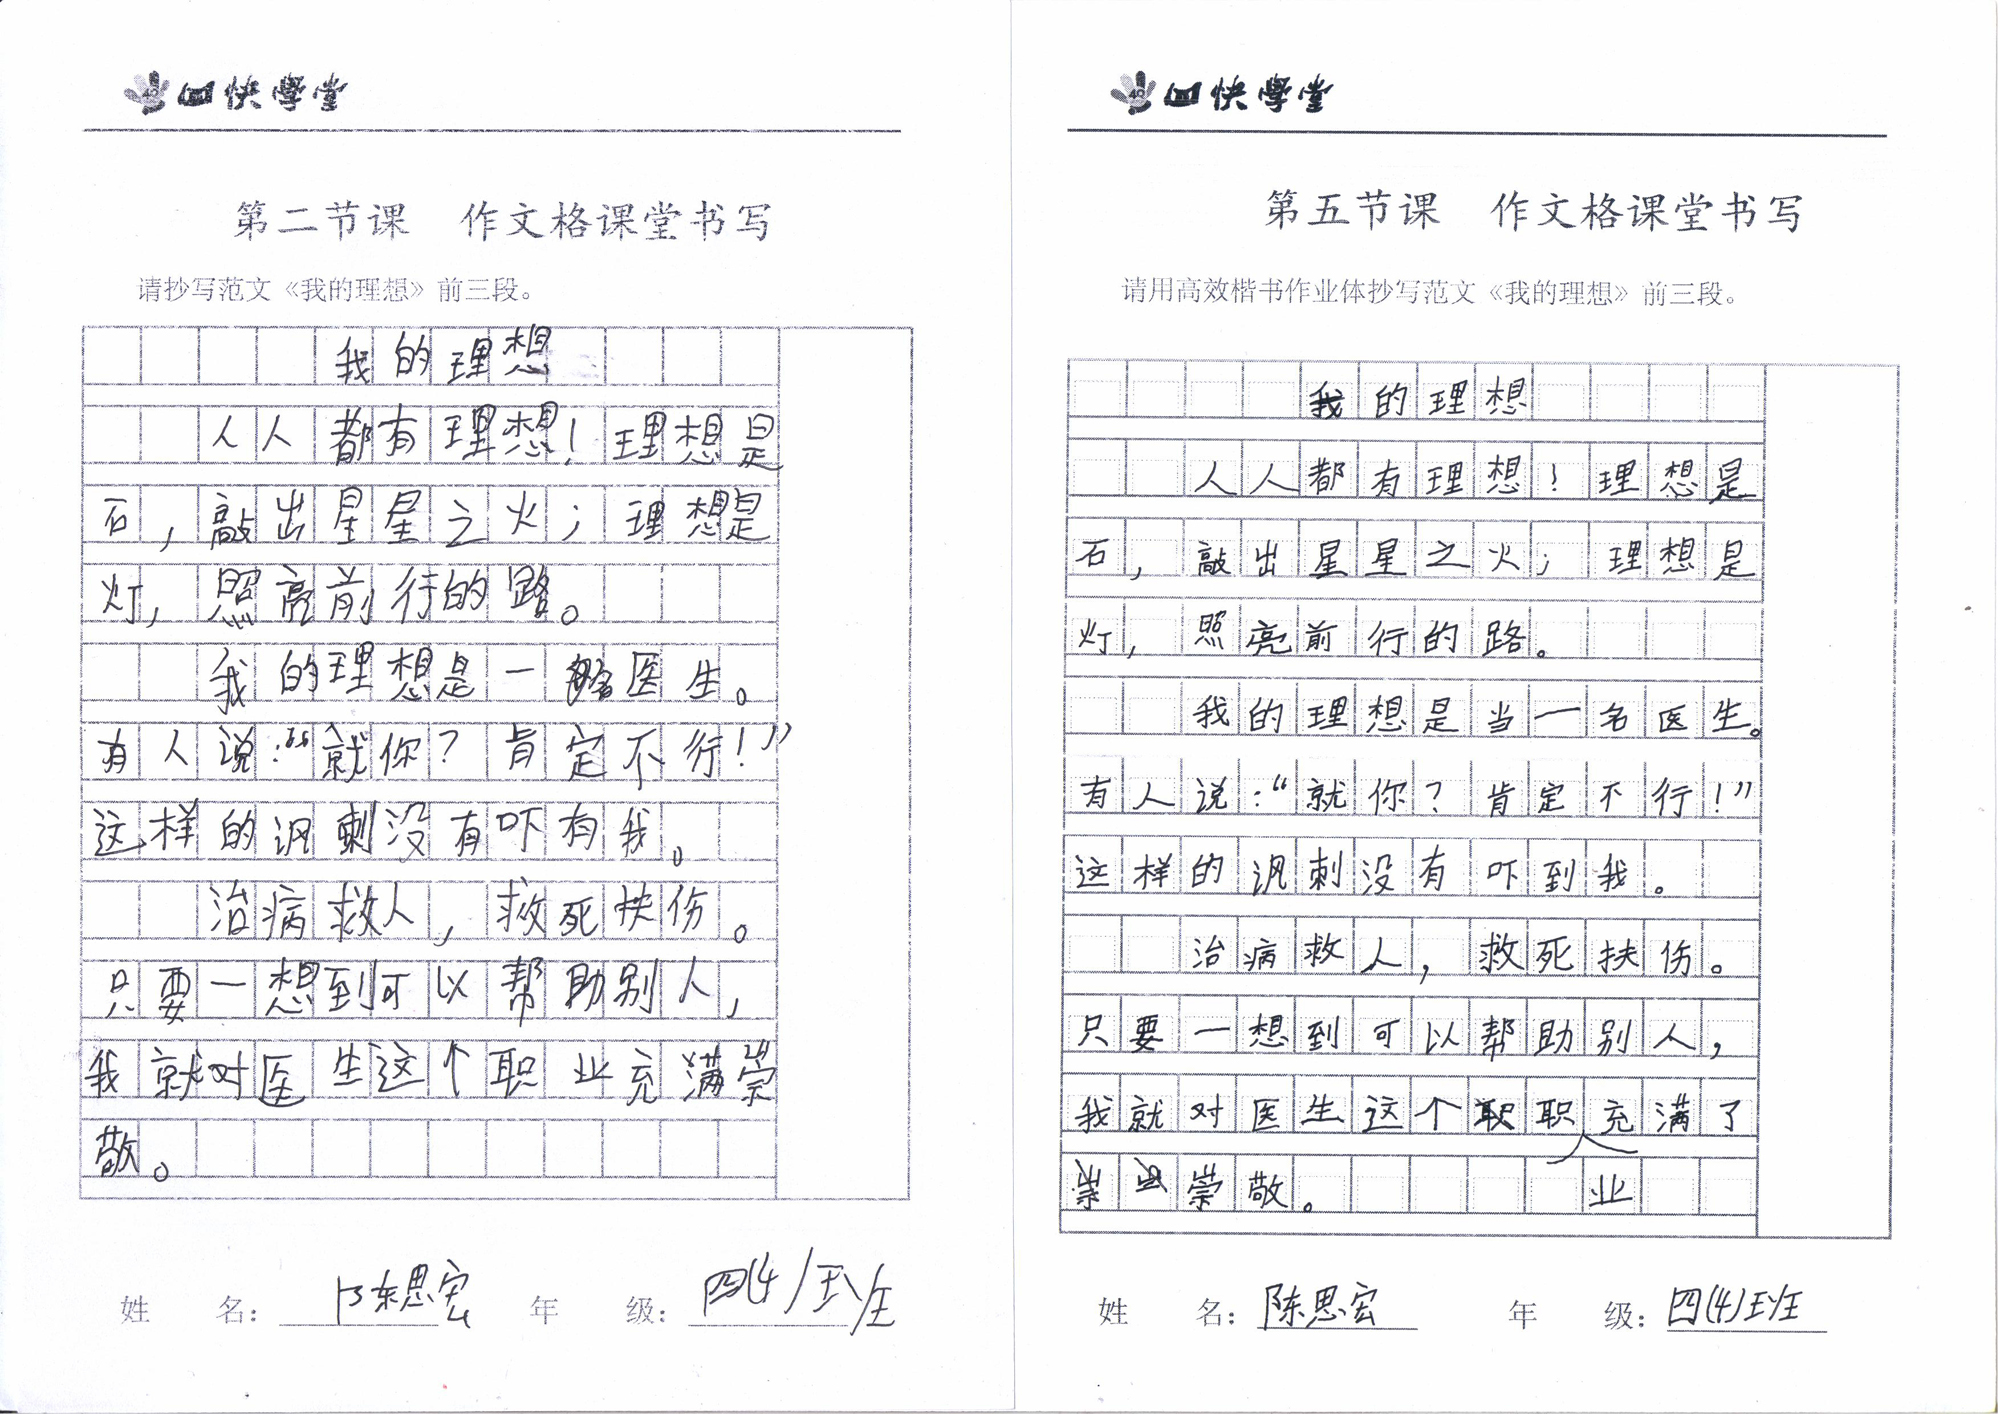 四快學堂
第二节课 作文格课堂书写
请抄写范文《我的理想》前三段。
我的理想
人人都有理想！理想是
石，敲出星星之火；理想是
灯，照亮前行的路。
我的理想是一名医生。
有人说：“就你？肯定不行！”
这样的讽刺没有吓有我。
治病救人，救死快伤。
只要一想到可以帮助别人，
我就对医生这个职业充满崇
敬。
姓 名：陈思宏 年 级：四(4)班
四快學堂
第五节课 作文格课堂书写
请用高效楷书作业体抄写范文《我的理想》前三段。
我的理想
人人都有理想！理想是
石，敲出星星之火；理想是
灯，照亮前行的路。
我的理想是当一名医生。
有人说：“就你？肯定不行！”
这样的讽刺没有吓到我。
治病救人，救死扶伤。
只要一想到可以帮助别人，
我就对医生这个职业充满了
崇敬。
姓 名：陈思宏 年 级：四(4)班